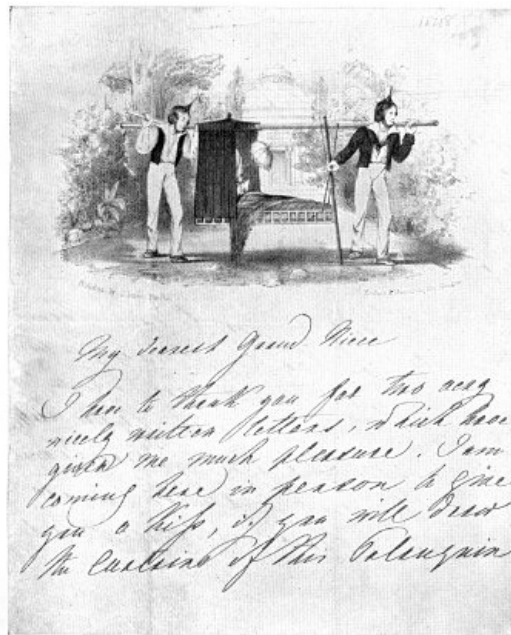 My dearest Grand Niece
I have to thank you for two very
nicely written letters, which have
given me much pleasure. I am
coming here in person to give
you a kiss, if you will draw
the Curtains of this Palanquin